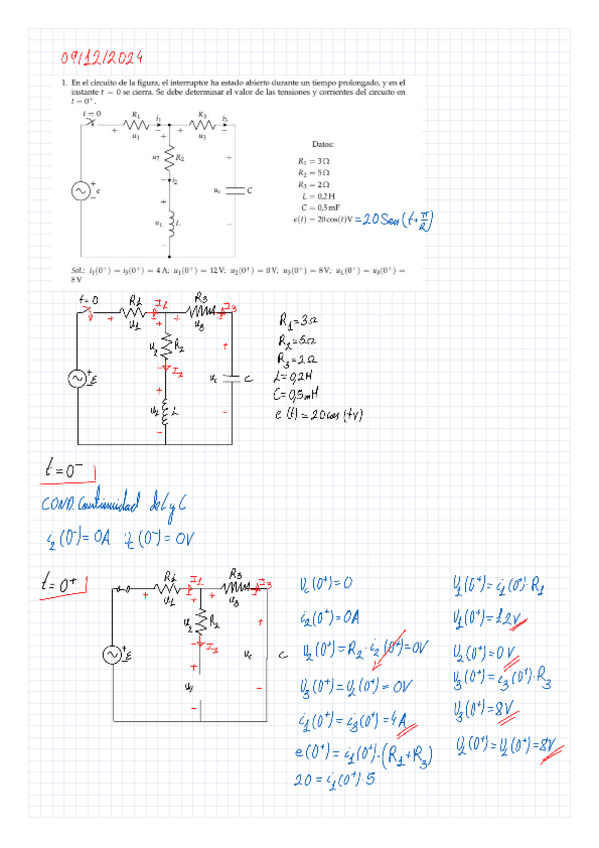 09/12/2024
1. En el circuito de la figura, el interruptor ha estado abierto durante un tiempo prolongado, y en el
instante t = 0 se cierra. Se debe determinar el valor de las tensiones y corrientes del circuito en
t = 0⁺.
t = 0 R₁ i₁ R₃ i₃
+ u₁ − + u₃ −
Datos:
R₁ = 3 Ω
R₂ = 5 Ω
R₃ = 2 Ω
L = 0,2 H
C = 0,5 mF
e(t) = 20 cos(t) V = 20 Sen (t + π/2)
u₂ R₂
i₂
e
u_L L
u_c C
Sol.: i₁(0⁺) = i₃(0⁺) = 4 A; u₁(0⁺) = 12 V; u₂(0⁺) = 0 V; u₃(0⁺) = 8 V; u_L(0⁺) = u₃(0⁺) =
8 V
t=0 R1 I1 R3 I3
+ u1 − + u3 −
u2 R2
I2
E
L
uc C
R1 = 3Ω
R2 = 5Ω
R3 = 2Ω
L = 0,2H
C = 0,5mH
e(t) = 20cos(tv)
t=0⁻
COND. Continuidad de L y C
i₂(0⁻) = 0A
(0⁻) = 0V
t=0⁺
R1 I1 R3 I3
+ u1 − + u3 −
u2 R2
I2
E
uc C
Uc(0⁺) = 0
i₂(0⁺) = 0A
U₂(0⁺) = R₂ · i₂(0⁺) = 0V
U₃(0⁺) = U₂(0⁺) = 0V
i₁(0⁺) = i₃(0⁺) = 4A
e(0⁺) = i₁(0⁺) · (R₁ + R₃)
20 = i₁(0⁺) · 5
U₁(0⁺) = i₁(0⁺) · R₁
U₁(0⁺) = 12V
U₂(0⁺) = 0V
U₃(0⁺) = i₃(0⁺) · R₃
U₃(0⁺) = 8V
(0⁺) = (0⁺) = 8V